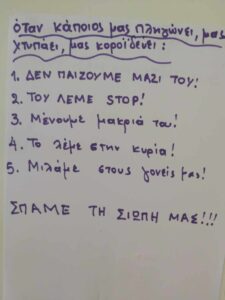 όταν κάποιος μας πληγώνει, μας
χτυπάει, μας κοροϊδεύει:
1. ΔΕΝ ΠΑΙΖΟΥΜΕ ΜΑΖΙ ΤΟΥ!
2. ΤΟΥ ΛΕΜΕ STOP!
3. Μένουμε μακριά του!
4. Το λέμε στην κυρία!
5. Μιλάμε στους γονείς μας!
ΣΠΑΜΕ ΤΗ ΣΙΩΠΗ ΜΑΣ!!!